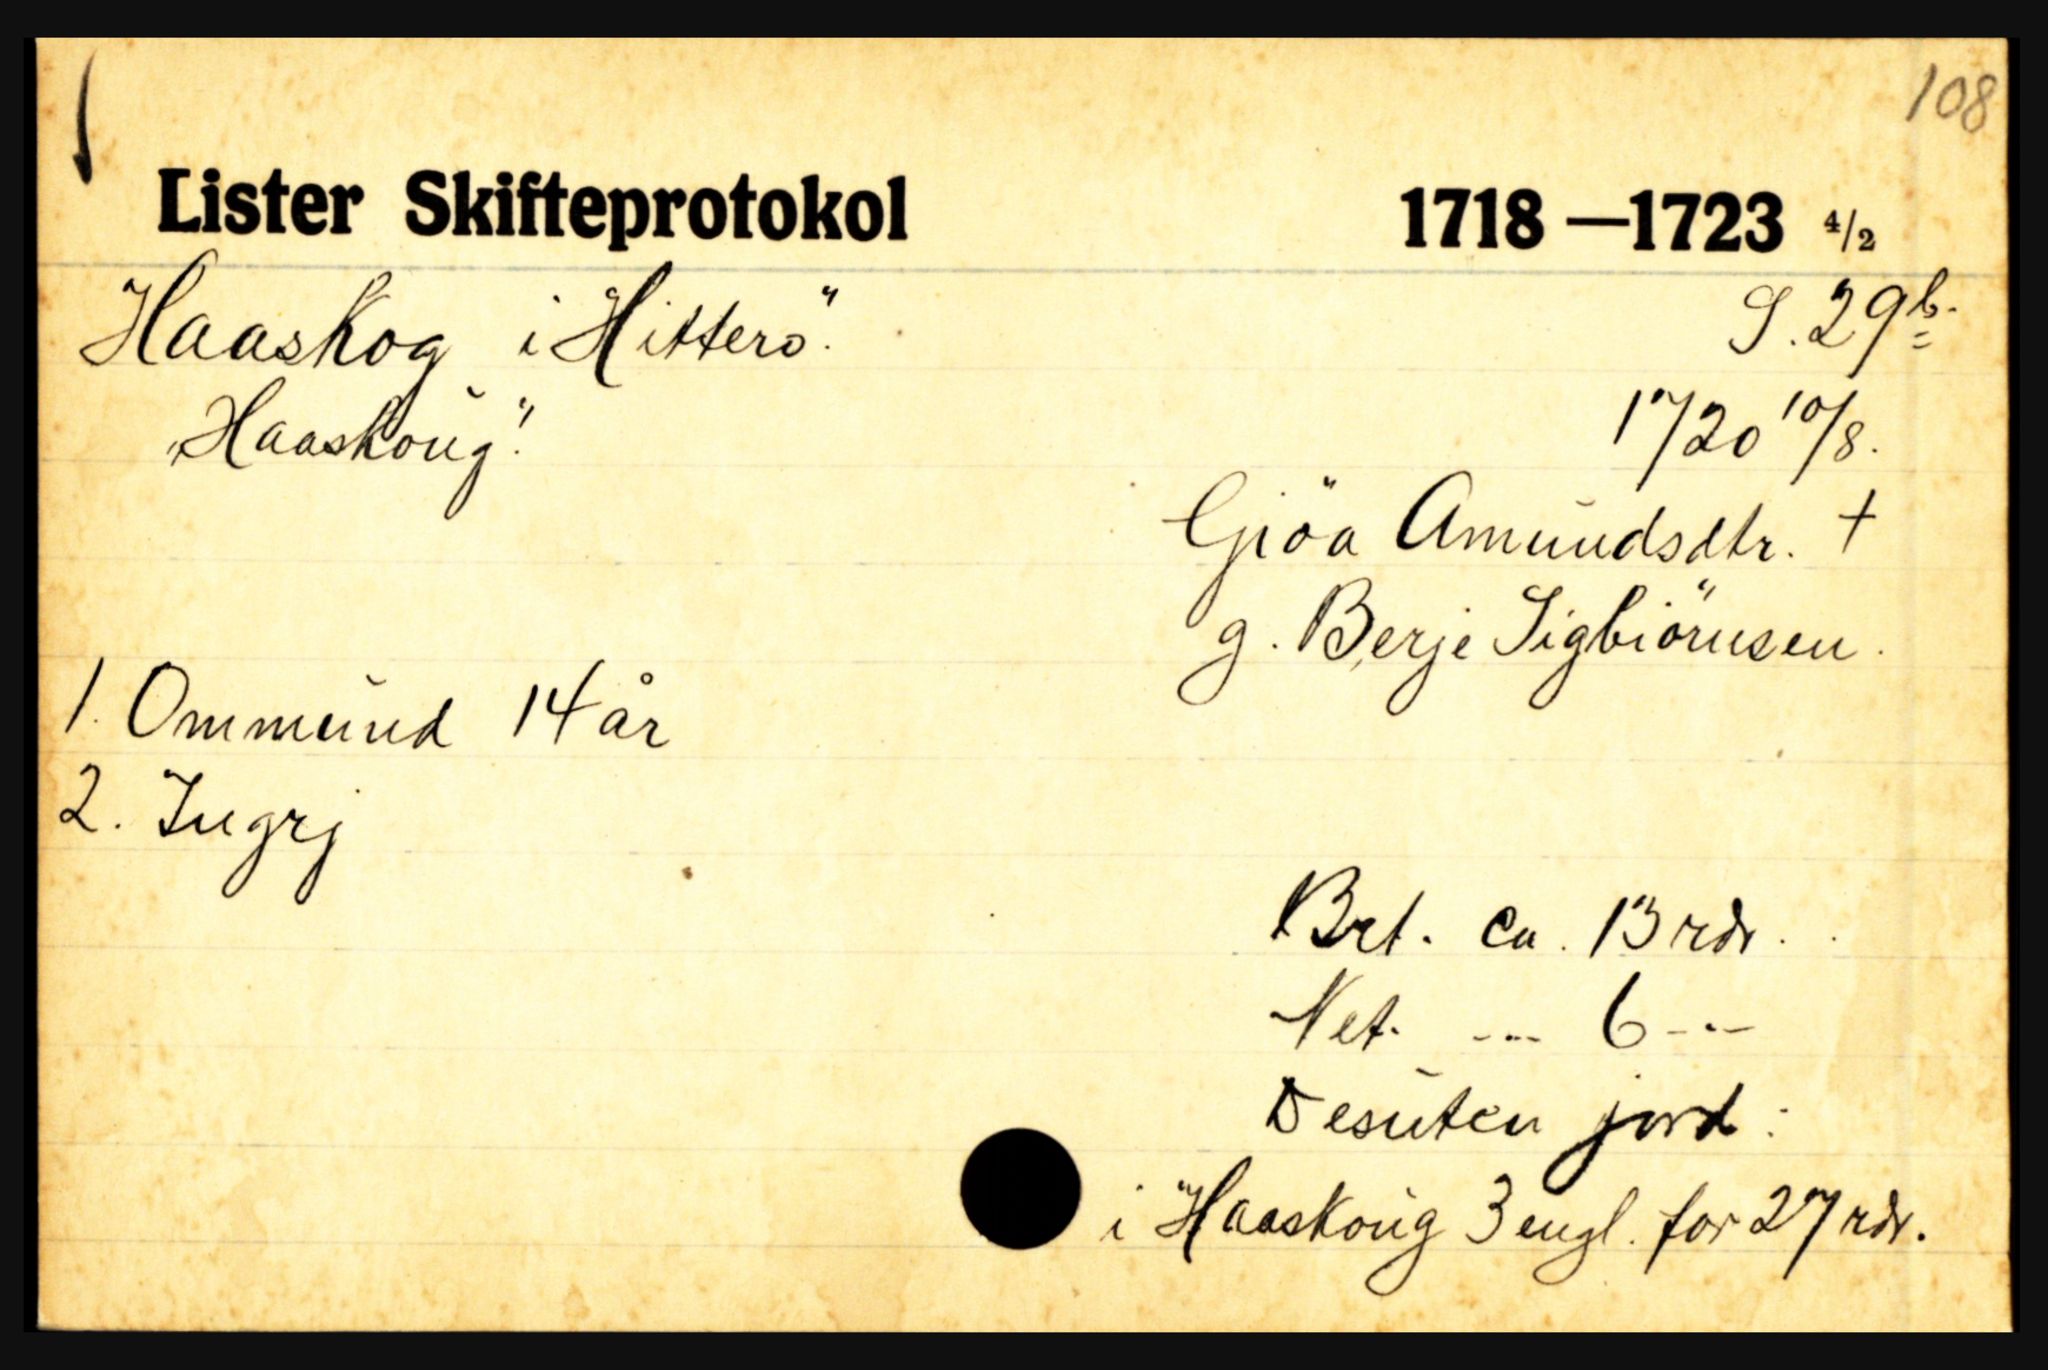 108
Lister Skifteprotokol 1718—1723 4/2
Haaskog i Hitterö. S. 29b.
"Haaskoug". 1720 10/8.
Gjöa Amundsdtr. †
g. Berje Sigbiörnsen.
1. Ommund 14 år
2. Ingrj
Brt. ca. 13 rdr.
Net. --- 6 ---
Desuten jord:
i Haaskoug 3 engl. for 27 rdr.